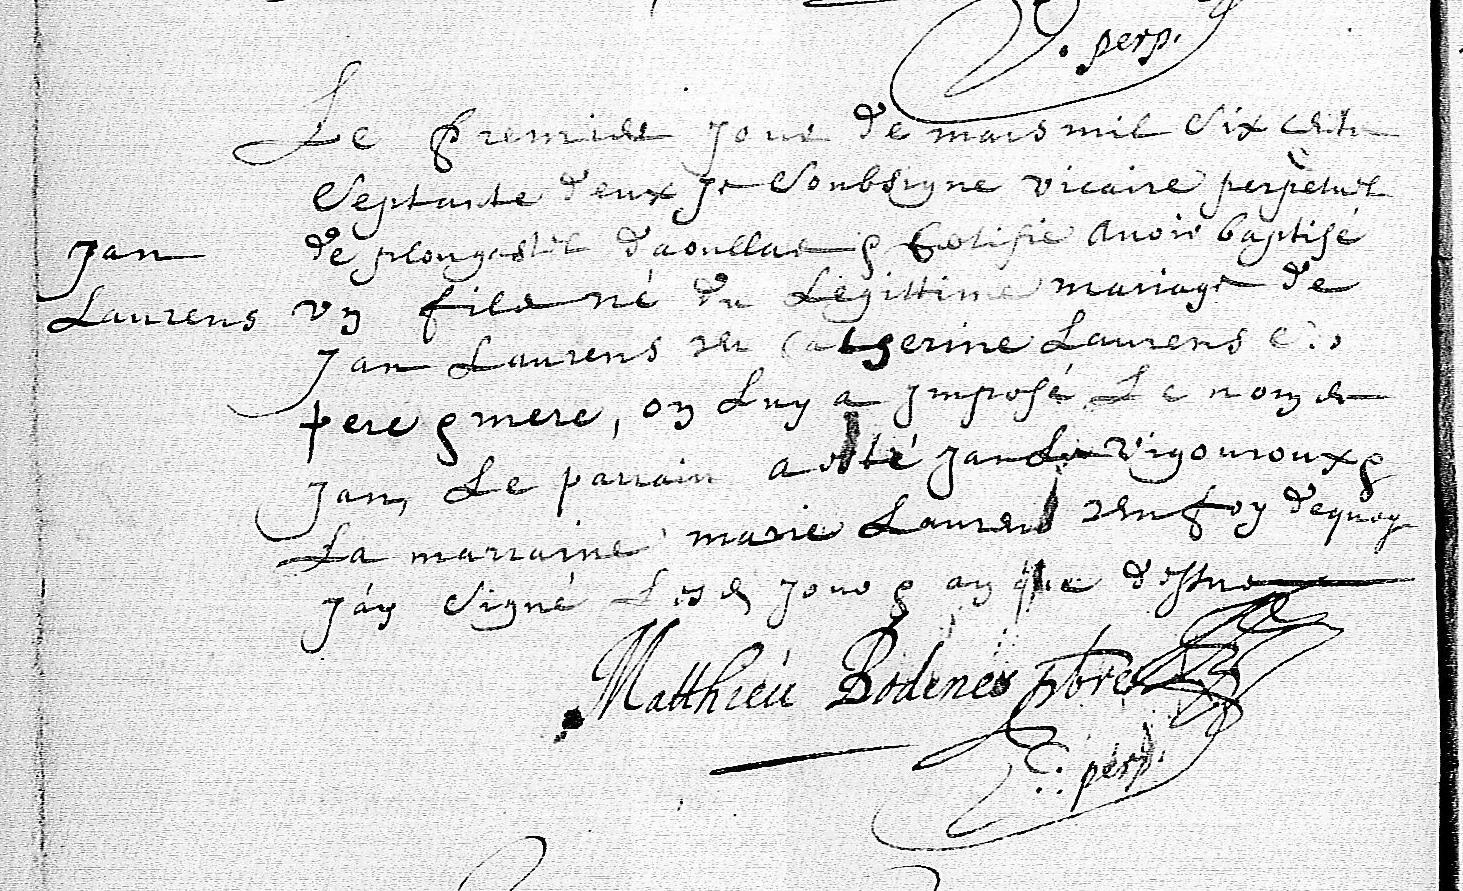 V. perp.
Le premier jour de mars mil six cents
septante deux je soubsigne vicaire perpetuel
Jan
de plougastel daoullas certifie avoir baptisé
Laurens
un fils né du Légittime mariage de
Jan Laurens et Catherine Laurens ses
pere & mere, on Luy a jmposé Le nom de
jan, Le parrain a esté jan Le vigouroux &
La marraine marie Laurens en foy dequoy
j'ay signé Lesd jour & an que dessus
Matthieu Bodenes pbre
V. perp.